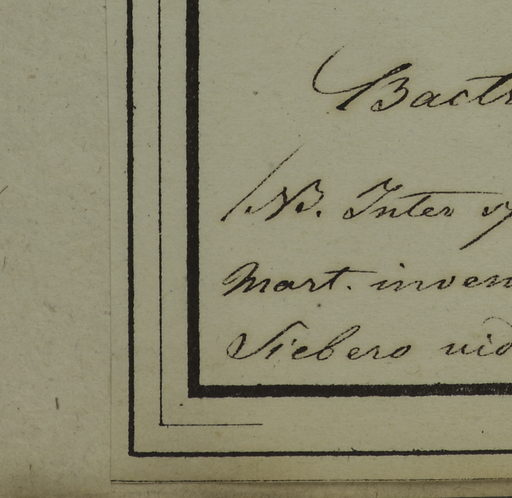 Bactr
NB. Inter sp
Mart. inven
Siebero vid